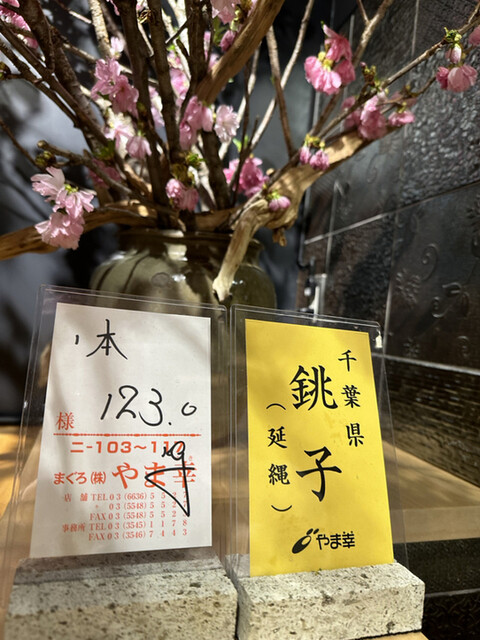 1本
様 123.0
ニ-103~1
まぐろ(株) やま幸
店舗 TEL 03 (6636) 5 5 2
〃 03 (5548) 5 5 2
FAX 03 (5548) 5 5 2
事務所 TEL 03 (3545) 1 1 7 8
FAX 03 (3546) 7 4 4 3
千葉県
銚子
(延縄)
やま幸